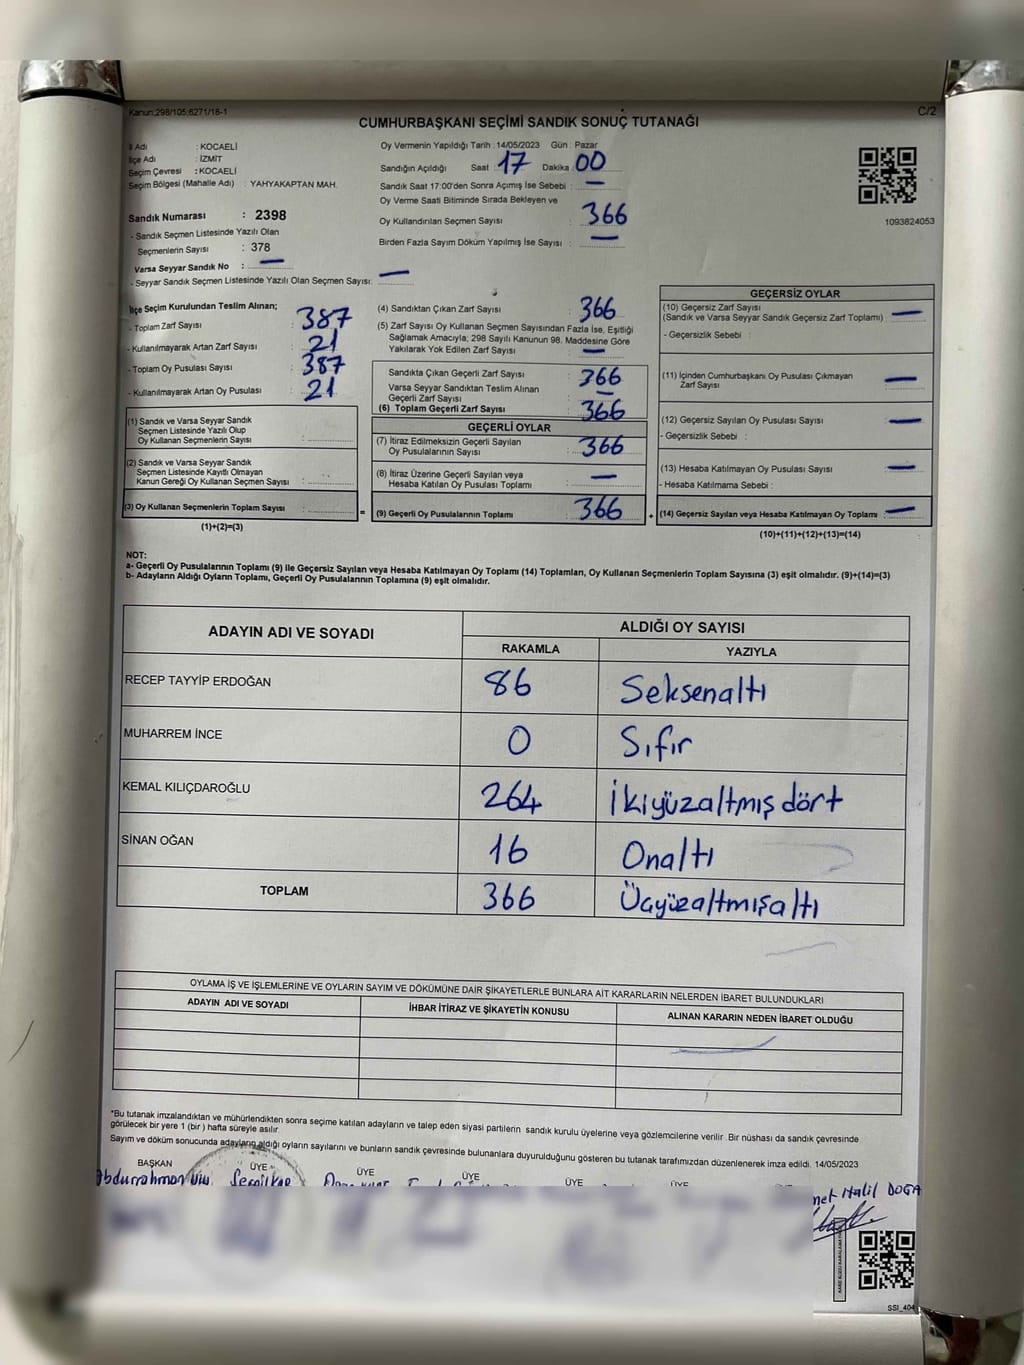 Kanun;298/105;6271/18-1
C/2
CUMHURBAŞKANI SEÇİMİ SANDIK SONUÇ TUTANAĞI
İl Adı : KOCAELİ
İlçe Adı : İZMİT
Seçim Çevresi : KOCAELİ
Seçim Bölgesi (Mahalle Adı) : YAHYAKAPTAN MAH.
Sandık Numarası : 2398
- Sandık Seçmen Listesinde Yazılı Olan
Seçmenlerin Sayısı : 378
Varsa Seyyar Sandık No : —
- Seyyar Sandık Seçmen Listesinde Yazılı Olan Seçmen Sayısı: —
Oy Vermenin Yapıldığı Tarih : 14/05/2023 Gün : Pazar
Sandığın Açıldığı Saat : 17 Dakika : 00
Sandık Saat 17:00'den Sonra Açımış İse Sebebi : —
Oy Verme Saati Bitiminde Sırada Bekleyen ve
Oy Kullandırılan Seçmen Sayısı : 366
Birden Fazla Sayım Döküm Yapılmış İse Sayısı : —
1093824053
İlçe Seçim Kurulundan Teslim Alınan;
- Toplam Zarf Sayısı : 387
- Kullanılmayarak Artan Zarf Sayısı : 21
- Toplam Oy Pusulası Sayısı : 387
- Kullanılmayarak Artan Oy Pusulası : 21
(1) Sandık ve Varsa Seyyar Sandık
Seçmen Listesinde Yazılı Olup
Oy Kullanan Seçmenlerin Sayısı :
(2) Sandık ve Varsa Seyyar Sandık
Seçmen Listesinde Kayıtlı Olmayan
Kanun Gereği Oy Kullanan Seçmen Sayısı :
(3) Oy Kullanan Seçmenlerin Toplam Sayısı :
(1)+(2)=(3)
=
(4) Sandıktan Çıkan Zarf Sayısı : 366
(5) Zarf Sayısı Oy Kullanan Seçmen Sayısından Fazla İse, Eşitliği
Sağlamak Amacıyla; 298 Sayılı Kanunun 98. Maddesine Göre
Yakılarak Yok Edilen Zarf Sayısı : —
Sandıkta Çıkan Geçerli Zarf Sayısı : 366
Varsa Seyyar Sandıktan Teslim Alınan
Geçerli Zarf Sayısı : —
(6) Toplam Geçerli Zarf Sayısı : 366
GEÇERLİ OYLAR
(7) İtiraz Edilmeksizin Geçerli Sayılan
Oy Pusulalarının Sayısı : 366
(8) İtiraz Üzerine Geçerli Sayılan veya
Hesaba Katılan Oy Pusulası Toplamı : —
(9) Geçerli Oy Pusulalarının Toplamı : 366
+
GEÇERSİZ OYLAR
(10) Geçersiz Zarf Sayısı
(Sandık ve Varsa Seyyar Sandık Geçersiz Zarf Toplamı) : —
- Geçersizlik Sebebi :
(11) İçinden Cumhurbaşkanı Oy Pusulası Çıkmayan
Zarf Sayısı : —
(12) Geçersiz Sayılan Oy Pusulası Sayısı : —
- Geçersizlik Sebebi :
(13) Hesaba Katılmayan Oy Pusulası Sayısı : —
- Hesaba Katılmama Sebebi :
(14) Geçersiz Sayılan veya Hesaba Katılmayan Oy Toplamı : —
(10)+(11)+(12)+(13)=(14)
NOT:
a- Geçerli Oy Pusulalarının Toplamı (9) ile Geçersiz Sayılan veya Hesaba Katılmayan Oy Toplamı (14) Toplamları, Oy Kullanan Seçmenlerin Toplam Sayısına (3) eşit olmalıdır. (9)+(14)=(3)
b- Adayların Aldığı Oyların Toplamı, Geçerli Oy Pusulalarının Toplamına (9) eşit olmalıdır.
ADAYIN ADI VE SOYADI
ALDIĞI OY SAYISI
RAKAMLA YAZIYLA
RECEP TAYYİP ERDOĞAN 86 Seksenaltı
MUHARREM İNCE 0 Sıfır
KEMAL KILIÇDAROĞLU 264 İkiyüzaltmış dört
SİNAN OĞAN 16 Onaltı
TOPLAM 366 Üçyüzaltmışaltı
OYLAMA İŞ VE İŞLEMLERİNE VE OYLARIN SAYIM VE DÖKÜMÜNE DAİR ŞİKAYETLERLE BUNLARA AİT KARARLARIN NELERDEN İBARET BULUNDUKLARI
ADAYIN ADI VE SOYADI İHBAR İTİRAZ VE ŞİKAYETİN KONUSU ALINAN KARARIN NEDEN İBARET OLDUĞU
*Bu tutanak imzalandıktan ve mühürlendikten sonra seçime katılan adayların ve talep eden siyasi partilerin sandık kurulu üyelerine veya gözlemcilerine verilir. Bir nüshası da sandık çevresinde
görülecek bir yere 1 (bir ) hafta süreyle asılır.
Sayım ve döküm sonucunda adayların aldığı oyların sayılarını ve bunların sandık çevresinde bulunanlara duyurulduğunu gösteren bu tutanak tarafımızdan düzenlenerek imza edildi. 14/05/2023
BAŞKAN ÜYE ÜYE ÜYE ÜYE ÜYE
Abdurrahman
Halil DOĞA
SSI_404